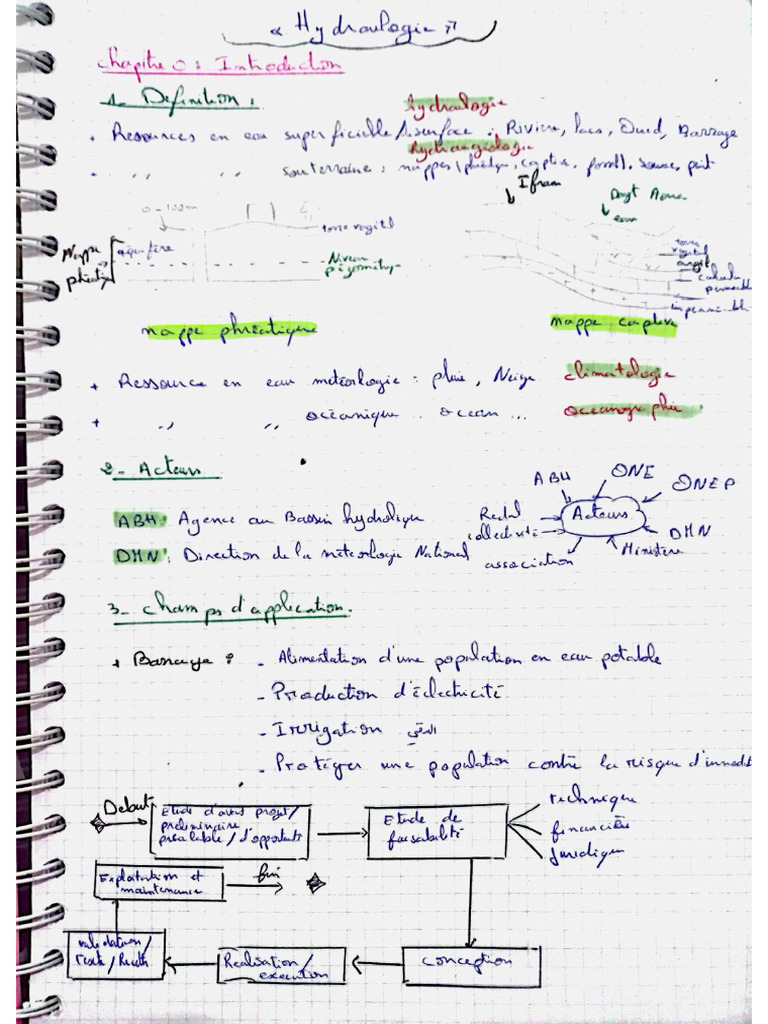 « Hydraulogie »
Chapitre 0 : Introduction
1- Definition :
hydraulogie
• Ressources en eau superficielle / surface : Rivière, lacs, Oued, Barrage
hydrogiologie
• ,, ,, souterraine : nappes (phréatique, captive, fossil), source, puit
Ifran
Dayt Aoua
eau
0-100m
terre vegitl
terre
vegitl
Nappe
phréatique
aquifère
Niveau
piézometrique
argil
calcaire
permeable
impermeable
nappe phréatique
nappe captive
+ Ressource en eau météorlogie : pluie, Neige
climatologie
+ ,, ,, océanique : ocean ...
oceanographie
2- Acteurs
ABH
ONE
ONEP
ABH : Agence au Bassin hydrolique
Acteurs
collectivité
DMN : Direction de la météorologie National
association
Ministère
DMN
3- champs d'application.
+ Barrage : - Alimentation d'une population en eau potable
- Production d'éléctricité
- Irrigation السقي
- Protéger une population contre la risque d'innodat
Debut
Etude d'avant projet/
préliminaire
préalable / d'opportunité
Etude de
faisabilité
technique
financière
Juridique
Exploitation et
maintenance
fin
validation/
Teste/
Réalisation/
execution
conception